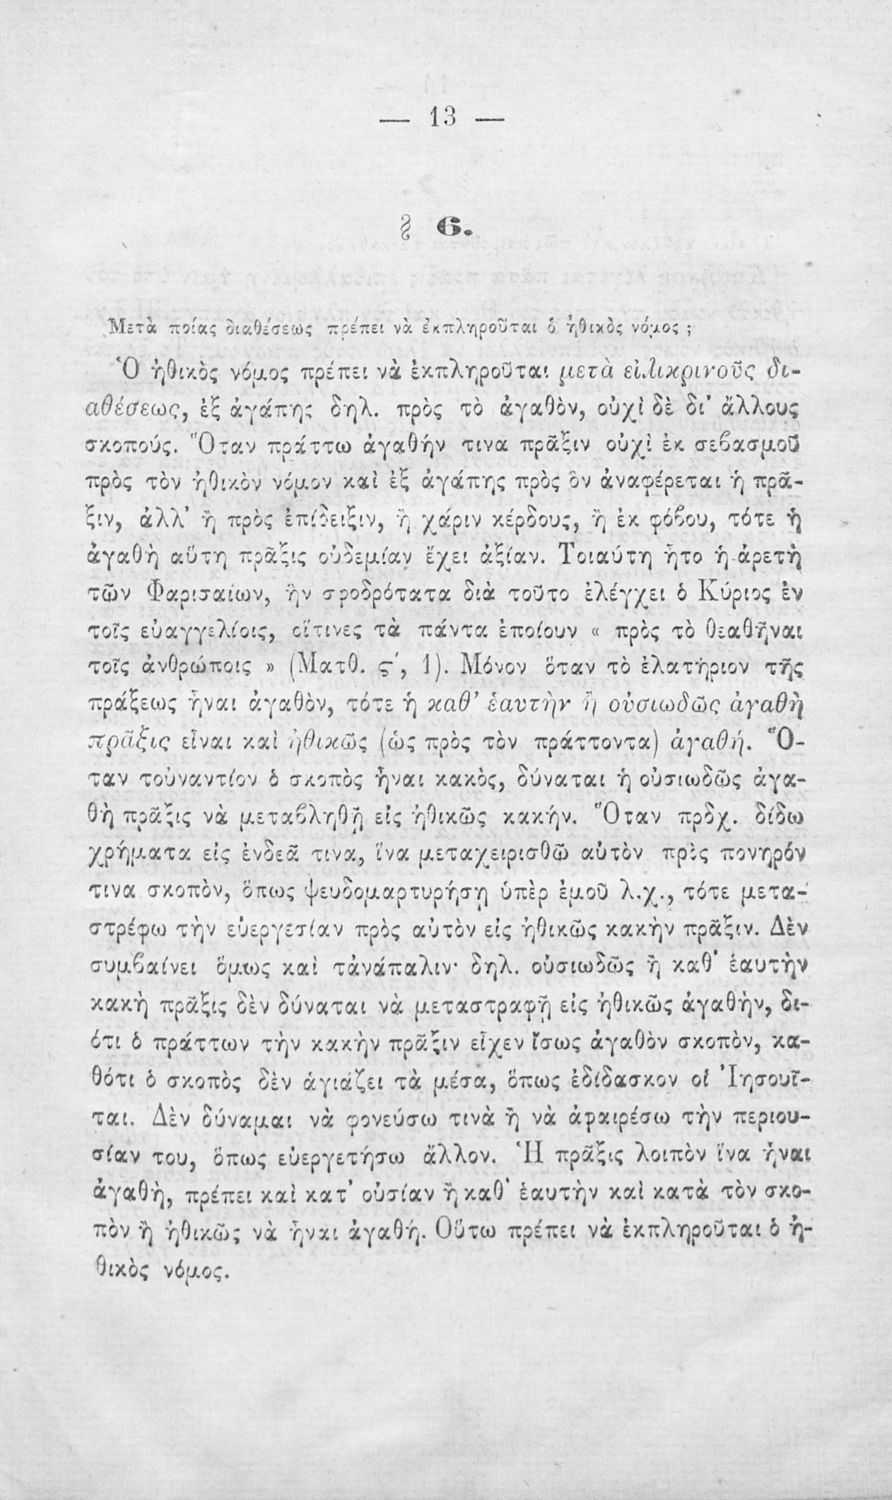 — 13 —
§ 6.
Μετὰ ποίας διαθέσεως πρέπει νὰ ἐκπληροῦται ὁ ἠθικὸς νόμος ;
Ὁ ἠθικὸς νόμος πρέπει νὰ ἐκπληροῦται μετὰ εἰλικρινοῦς δι-
αθέσεως, ἐξ ἀγάπης δηλ. πρὸς τὸ ἀγαθὸν, οὐχὶ δὲ δι' ἄλλους
σκοπούς. Ὅταν πράττω ἀγαθήν τινα πρᾶξιν οὐχὶ ἐκ σεβασμοῦ
πρὸς τὸν ἠθικὸν νόμον καὶ ἐξ ἀγάπης πρὸς ὃν ἀναφέρεται ἡ πρᾶ-
ξιν, ἀλλ' ἢ πρὸς ἐπίδειξιν, ἢ χάριν κέρδους, ἢ ἐκ φόβου, τότε ἡ
ἀγαθὴ αὕτη πρᾶξις οὐδεμίαν ἔχει ἀξίαν. Τοιαύτη ἦτο ἡ ἀρετὴ
τῶν Φαρισαίων, ἣν σφοδρότατα διὰ τοῦτο ἐλέγχει ὁ Κύριος ἐν
τοῖς εὐαγγελίοις, οἵτινες τὰ πάντα ἐποίουν « πρὸς τὸ θεαθῆναι
τοῖς ἀνθρώποις » (Ματθ. ϛ', 1). Μόνον ὅταν τὸ ἐλατήριον τῆς
πράξεως ἦναι ἀγαθὸν, τότε ἡ καθ' ἑαυτὴν ἢ οὐσιωδῶς ἀγαθὴ
πρᾶξις εἶναι καὶ ἠθικῶς (ὡς πρὸς τὸν πράττοντα) ἀγαθή. Ὅ-
ταν τοὐναντίον ὁ σκοπὸς ἦναι κακὸς, δύναται ἡ οὐσιωδῶς ἀγα-
θὴ πρᾶξις νὰ μεταβληθῇ εἰς ἠθικῶς κακήν. Ὅταν πρὸχ. δίδω
χρήματα εἰς ἐνδεᾶ τινα, ἵνα μεταχειρισθῶ αὐτὸν πρὸς πονηρόν
τινα σκοπὸν, ὅπως ψευδομαρτυρήσῃ ὑπὲρ ἐμοῦ λ.χ., τότε μετα-
στρέφω τὴν εὐεργεσίαν πρὸς αὐτὸν εἰς ἠθικῶς κακὴν πρᾶξιν. Δὲν
συμβαίνει ὅμως καὶ τἀνάπαλιν· δηλ. οὐσιωδῶς ἢ καθ' ἑαυτὴν
κακὴ πρᾶξις δὲν δύναται νὰ μεταστραφῇ εἰς ἠθικῶς ἀγαθὴν, δι-
ότι ὁ πράττων τὴν κακὴν πρᾶξιν εἶχεν ἴσως ἀγαθὸν σκοπὸν, κα-
θότι ὁ σκοπὸς δὲν ἁγιάζει τὰ μέσα, ὅπως ἐδίδασκον οἱ Ἰησουῖ-
ται. Δὲν δύναμαι νὰ φονεύσω τινὰ ἢ νὰ ἀφαιρέσω τὴν περιου-
σίαν του, ὅπως εὐεργετήσω ἄλλον. Ἡ πρᾶξις λοιπὸν ἵνα ἦναι
ἀγαθὴ, πρέπει καὶ κατ' οὐσίαν ἢ καθ' ἑαυτὴν καὶ κατὰ τὸν σκο-
πὸν ἢ ἠθικῶς νὰ ἦναι ἀγαθή. Οὕτω πρέπει νὰ ἐκπληροῦται ὁ ἠ-
θικὸς νόμος.